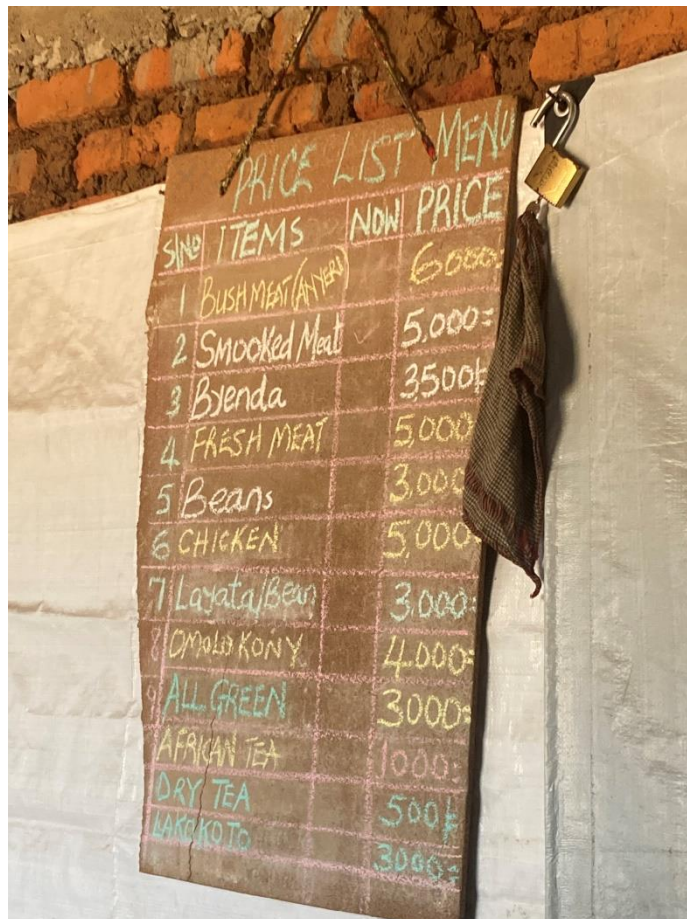 PRICE LIST MENU
S/No ITEMS NOW PRICE
1 BUSHMEAT (ANYERI) 6000=
2 Smooked Meat 5,000=
3 Byenda 3500=
4 FRESH MEAT 5,000
5 Beans 3,000
6 CHICKEN 5,000
7 Layata/Bean 3,000=
8 OMOLO KONY 4,000=
9 ALL GREEN 3000=
AFRICAN TEA 1000=
DRY TEA 500=
LAKOKOTO 3000=